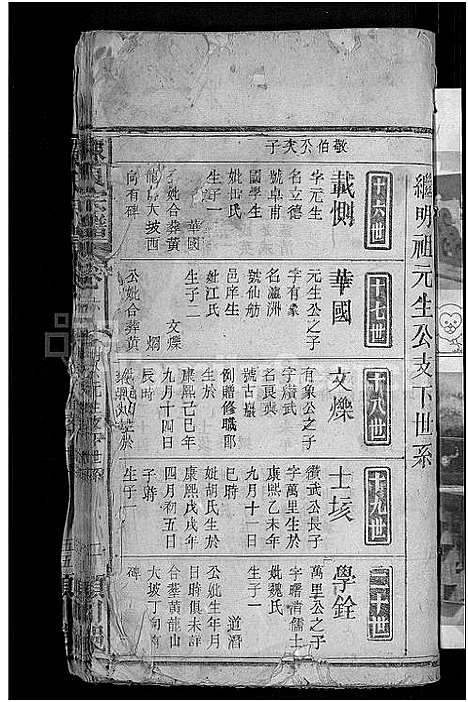 繼明祖元生公支下世系
敬伯公長子
十六世
載惻
字元生
名立德
號卓甫
國學生
妣伍氏
生子一
華國
子妣合葬黃
龍山大坡酉
向有碑
十七世
華國
元生公之子
字有象
名瀛洲
號仙舫
邑庠生
妣江氏
生子二
文爍
公妣合葬黃
十八世
文爍
有象公之子
字纘武
名長爽
號古巖
例贈修職郎
生於
康熙己巳年
九月十四日
辰時
十九世
士垓
纘武公長子
字萬里生於
康熙乙未年
九月十一日
巳時
妣胡氏生於
康熙戊戌年
四月初五日
子時
生子一
二十世
學銓
萬里公之子
字聘清儒士
妣魏氏
生子一
道濳
公妣生年月
日時俱未詳
合葬黃龍山
大坡丁向有
碑